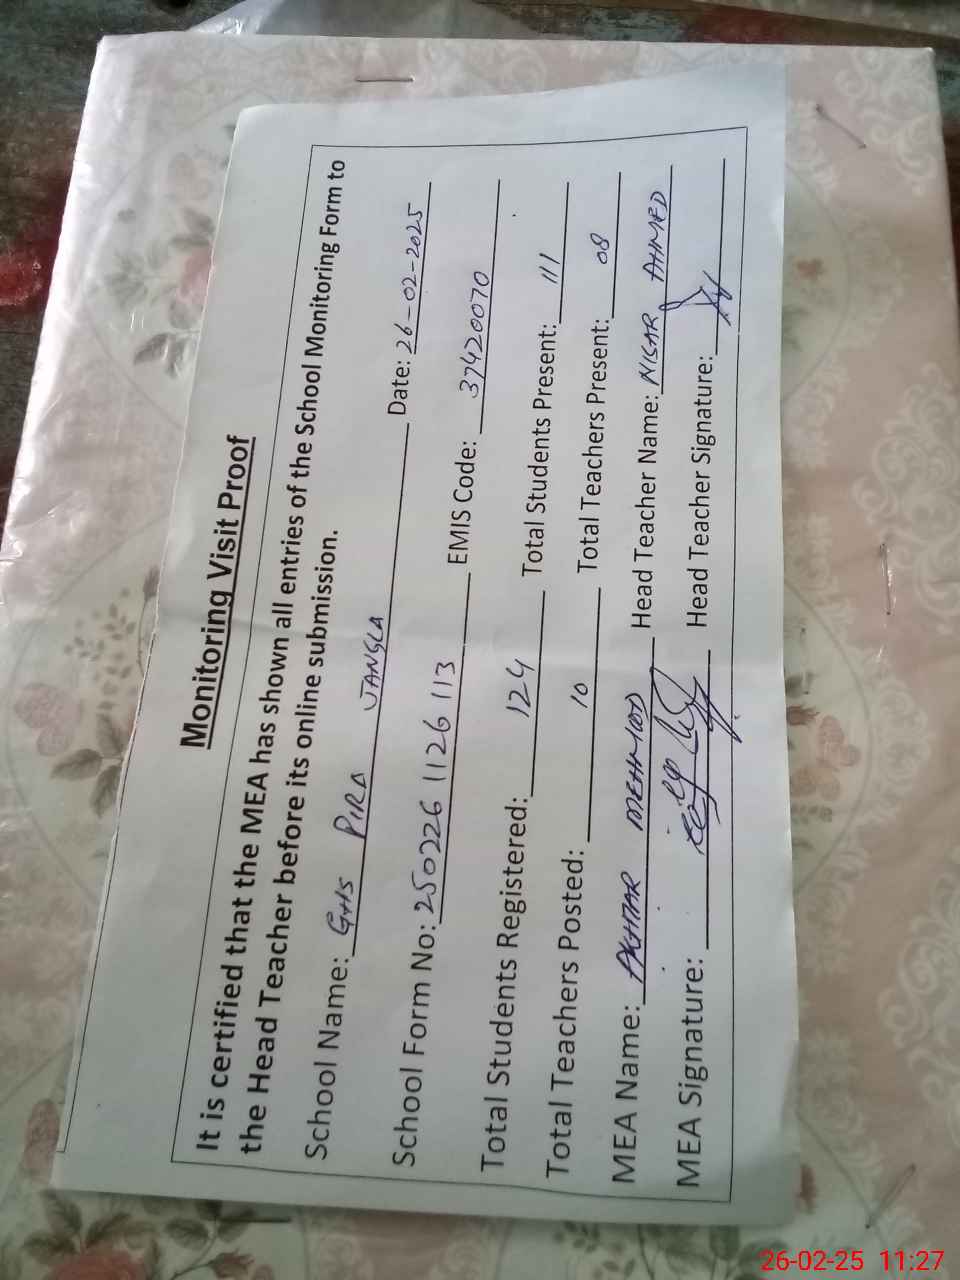 Monitoring Visit Proof
It is certified that the MEA has shown all entries of the School Monitoring Form to
the Head Teacher before its online submission.
School Name: GHS PIRA JANGLA Date: 26-02-2025
School Form No: 250226 1126 113 EMIS Code: 37420070
Total Students Registered: 124 Total Students Present: 111
Total Teachers Posted: 10 Total Teachers Present: 08
MEA Name: AKHTAR MEHMOOD Head Teacher Name: NISAR AHMED
MEA Signature: Head Teacher Signature:
26-02-25 11:27